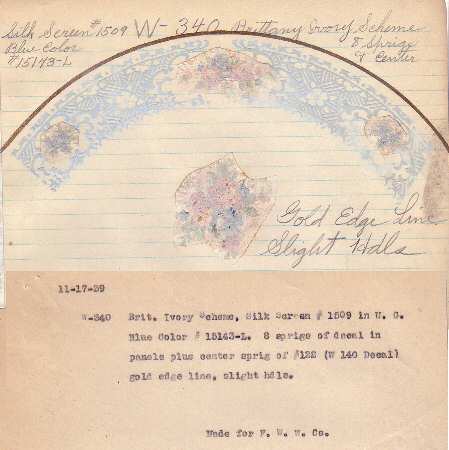 Silk Screen #1509 W-340 Brittany Ivory Scheme
Blue Color 8 Sprigs
#15143-L & Center
Gold Edge Line
Slight Hdls
11-17-39
W-340 Brit. Ivory Scheme, Silk Screen # 1509 in U. G.
Blue Color # 15143-L. 8 sprigs of decal in
panels plus center sprig of #122 (W 140 Decal)
gold edge line, slight hdls.
Made for F. W. W. Co.